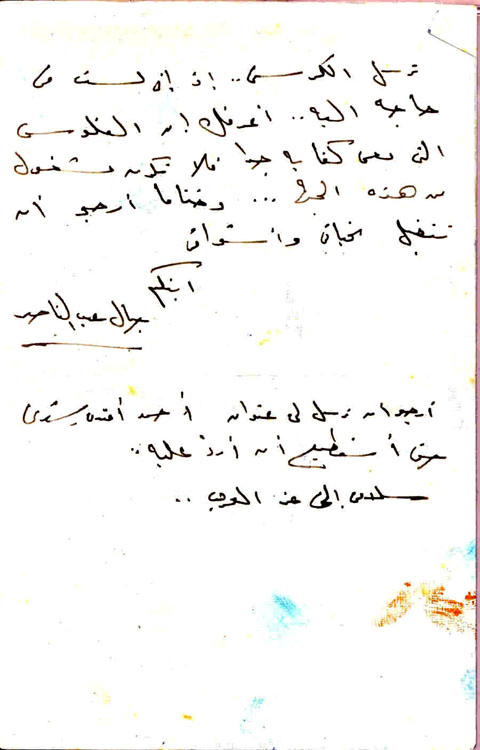 ترسل الكرسى.. إذ إنى لست فى
حاجة إليه.. أعرفك إن الفلوس
التى معى كفاية جدا فلا تكن مشغول
من هذه الجهة ... وختاما أرجو أن
تتقبل تحياتى وأشواقى
ابنكم
جمال عبد الناصر
أرجو أن ترسل لى عنوان أحمد أفندى
حتى أستطيع أن أرد عليه..
سلامى إلى عز العرب ..